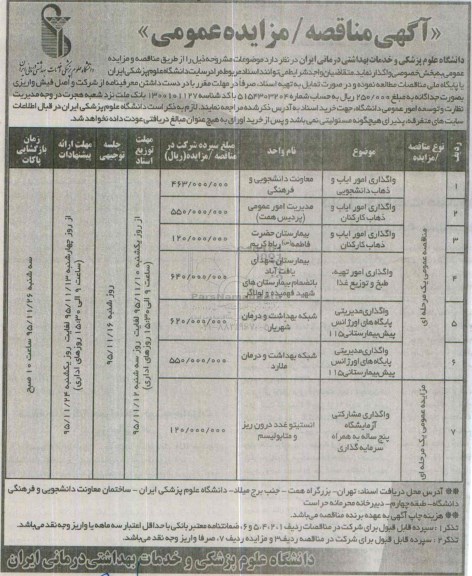 «آگهی مناقصه / مزایده عمومی»
دانشگاه علوم پزشکی و خدمات بهداشتی درمانی ایران در نظر دارد موضوعات مشروحه ذیل را از طریق مناقصه و مزایده
عمومی به بخش خصوصی واگذار نماید. متقاضیان واجد شرایط می توانند
ردیف
نوع مناقصه /مزایده
موضوع
نام واحد
مبلغ سپرده شرکت در مناقصه /مزایده(ریال)
مهلت توزیع اسناد
جلسه توجیهی
مهلت ارائه پیشنهادات
زمان بازگشایی پاکات
مناقصه عمومی یک مرحله ای
۱
واگذاری امور ایاب و ذهاب دانشجویی
معاونت دانشجویی و فرهنگی
۴۶۳/۰۰۰/۰۰۰
۲
واگذاری امور ایاب و ذهاب کارکنان
مدیریت امور عمومی (پردیس همت)
۵۵۰/۰۰۰/۰۰۰
۳
واگذاری امور ایاب و ذهاب کارکنان
بیمارستان حضرت فاطمه(س) رباط کریم
۱۲۰/۰۰۰/۰۰۰
۴
واگذاری امور تهیه، طبخ و توزیع غذا
بیمارستان شهدای یافت آباد بانضمام بیمارستان های شهید فهمیده و لولاگر
۶۴۰/۰۰۰/۰۰۰
۵
واگذاری مدیریتی پایگاه های اورژانس پیش بیمارستانی ۱۱۵
شبکه بهداشت و درمان شهریار
۶۲۰/۰۰۰/۰۰۰
۶
واگذاری مدیریتی پایگاه های اورژانس پیش بیمارستانی ۱۱۵
شبکه بهداشت و درمان ملارد
۵۵۰/۰۰۰/۰۰۰
مزایده عمومی یک مرحله ای
۷
واگذاری مشارکتی آزمایشگاه پنج ساله به همراه سرمایه گذاری
انستیتو غدد درون ریز و متابولیسم
۱۲۰/۰۰۰/۰۰۰
از روز یکشنبه ۹۵/۱۱/۱۰ لغایت روز سه شنبه ۹۵/۱۱/۱۲ (ساعت ۹ الی ۱۵:۳۰ روزهای اداری)
روز شنبه ۹۵/۱۱/۱۶
از روز چهارشنبه ۹۵/۱۱/۱۳ لغایت روز یکشنبه ۹۵/۱۱/۲۴ (ساعت ۹ الی ۱۵:۳۰ روزهای اداری)
سه شنبه ۹۵/۱۱/۲۶ ساعت ۱۰ صبح
** آدرس محل دریافت اسناد: تهران- بزرگراه همت - جنب برج میلاد- دانشگاه علوم پزشکی ایران - ساختمان معاونت دانشجویی و فرهنگی
دانشگاه- طبقه چهارم- دبیرخانه محرمانه حراست
** هزینه چاپ آگهی به عهده برنده مناقصه می باشد.
تذکر۱: سپرده قابل قبول برای شرکت در مناقصات ردیف ۱،۲،۴،۵ و ۶: ضمانتنامه معتبر بانکی با حداقل اعتبار سه ماهه یا واریز وجه نقد می باشد.
تذکر۲: سپرده قابل قبول برای شرکت در مناقصه ردیف ۳ و مزایده ردیف ۷، صرفا واریز وجه نقد می باشد.
دانشگاه علوم پزشکی و خدمات بهداشتی درمانی ایران